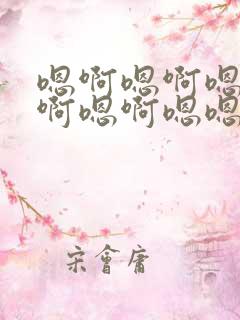 嗯啊嗯啊嗯
啊嗯啊嗯嗯
宋會庸